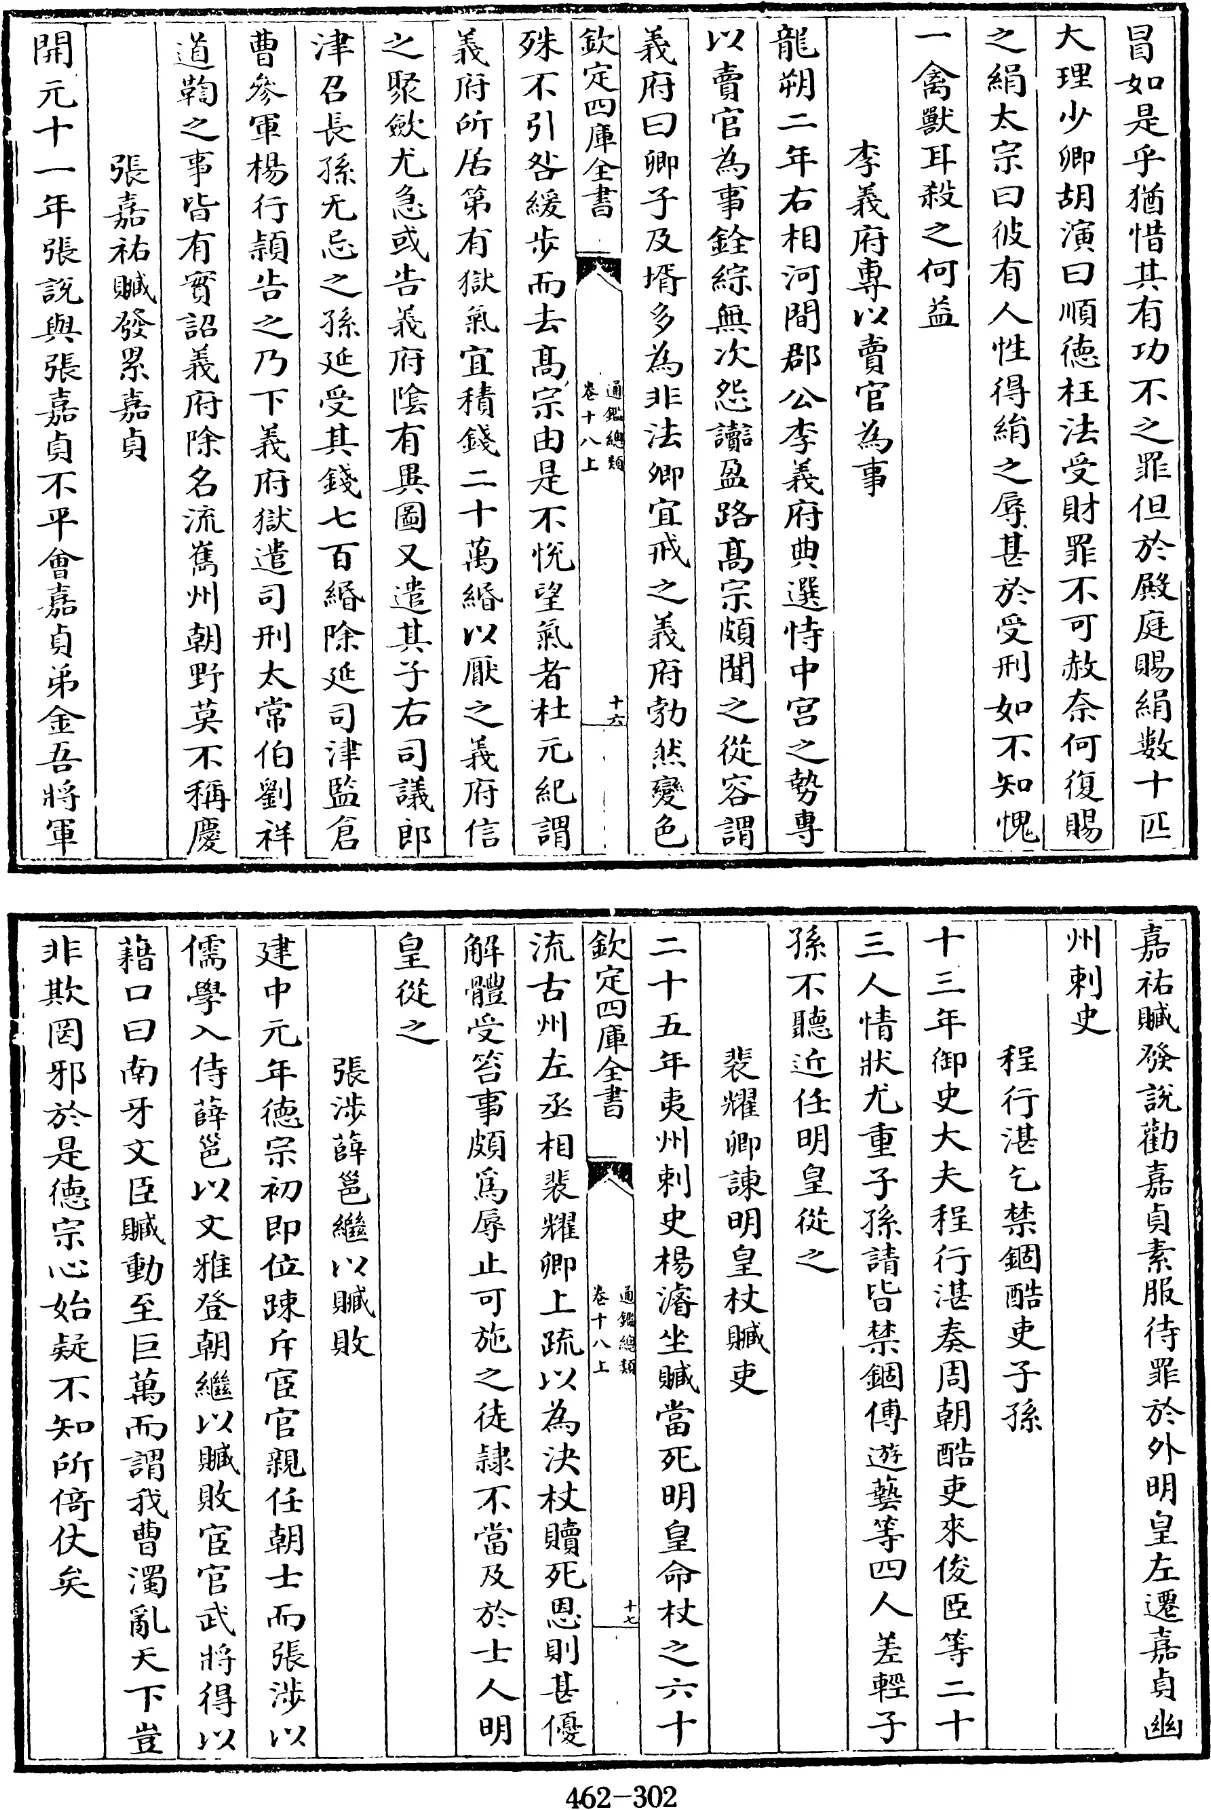 冒如是乎猶惜其有功不之罪但於殿庭賜絹數十匹
大理少卿胡演曰順德枉法受財罪不可赦奈何復賜
之絹太宗曰彼有人性得絹之辱甚於受刑如不知愧
一禽獸耳殺之何益
李義府專以賣官為事
龍朔二年右相河間郡公李義府典選恃中宫之勢專
以賣官為事銓綜無次怨讟盈路髙宗頗聞之從容謂
義府曰卿子及壻多為非法卿宜戒之義府勃然變色
欽定四庫全書
通鑑總類
卷十八上
十六
殊不引咎緩歩而去髙宗由是不悅望氣者杜元紀謂
義府所居第有獄氣宜積錢二十萬緡以厭之義府信
之聚歛尤急或告義府隂有異圖又遣其子右司議郎
津召長孫无忌之孫延受其錢七百緡除延司津監倉
曹參軍楊行頴告之乃下義府獄遣司刑太常伯劉祥
道鞫之事皆有實詔義府除名流嶲州朝野莫不稱慶
張嘉祐贓發累嘉貞
開元十一年張説與張嘉貞不平會嘉貞弟金吾將軍
嘉祐贓發説勸嘉貞素服待罪於外明皇左遷嘉貞幽
州刺史
程行湛乞禁錮酷吏子孫
十三年御史大夫程行湛奏周朝酷吏來俊臣等二十
三人情狀尤重子孫請皆禁錮傅遊藝等四人差輕子
孫不聽近任明皇從之
裴耀卿諫明皇杖贓吏
二十五年夷州刺史楊濬坐贓當死明皇命杖之六十
欽定四庫全書
通鑑總類
卷十八上
十七
流古州左丞相裴耀卿上疏以為決杖贖死恩則甚優
解體受笞事頗為辱止可施之徒隷不當及於士人明
皇從之
張渉薛邕繼以贓敗
建中元年德宗初即位踈斥宦官親任朝士而張渉以
儒學入侍薛邕以文雅登朝繼以贓敗宦官武將得以
藉口曰南牙文臣贓動至巨萬而謂我曹濁亂天下豈
非欺罔邪於是德宗心始疑不知所倚仗矣
462-302